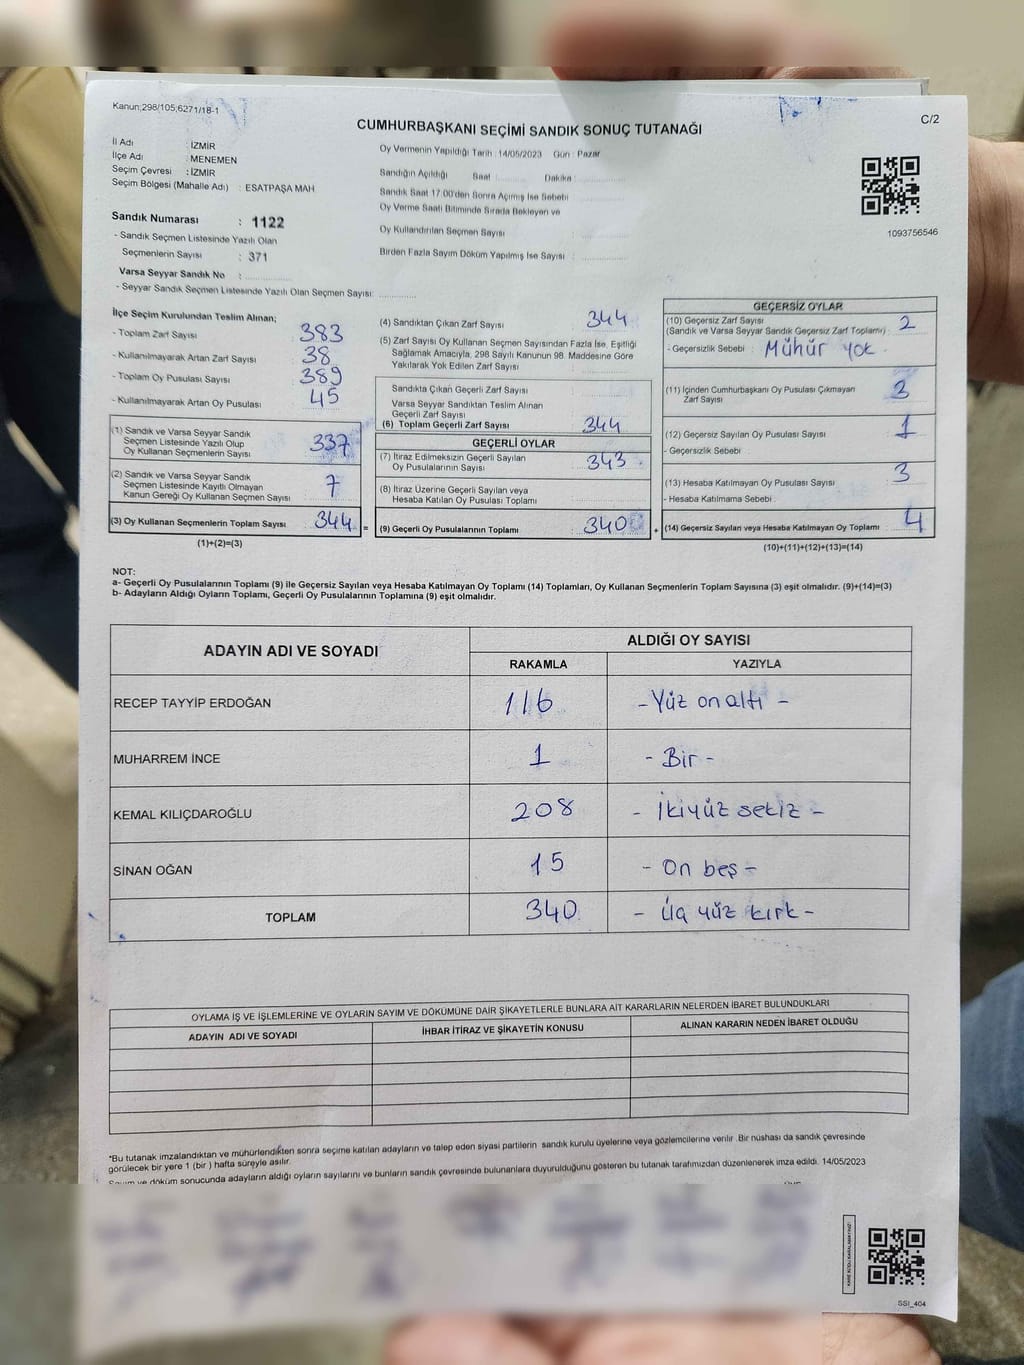 Kanun;298/105;6271/18-1
C/2
CUMHURBAŞKANI SEÇİMİ SANDIK SONUÇ TUTANAĞI
İl Adı : İZMİR
İlçe Adı : MENEMEN
Seçim Çevresi : İZMİR
Seçim Bölgesi (Mahalle Adı) : ESATPAŞA MAH
Sandık Numarası : 1122
- Sandık Seçmen Listesinde Yazılı Olan
Seçmenlerin Sayısı : 371
Varsa Seyyar Sandık No :
- Seyyar Sandık Seçmen Listesinde Yazılı Olan Seçmen Sayısı:
Oy Vermenin Yapıldığı Tarih : 14/05/2023 Gün : Pazar
Sandığın Açıldığı Saat : Dakika :
Sandık Saat 17.00'den Sonra Açılmış İse Sebebi
Oy Verme Saati Bitiminde Sırada Bekleyen ve
Oy Kullandırılan Seçmen Sayısı :
Birden Fazla Sayım Döküm Yapılmış İse Sayısı :
1093756546
İlçe Seçim Kurulundan Teslim Alınan;
- Toplam Zarf Sayısı 383
- Kullanılmayarak Artan Zarf Sayısı 38
- Toplam Oy Pusulası Sayısı 389
- Kullanılmayarak Artan Oy Pusulası 45
(1) Sandık ve Varsa Seyyar Sandık
Seçmen Listesinde Yazılı Olup
Oy Kullanan Seçmenlerin Sayısı 337
(2) Sandık ve Varsa Seyyar Sandık
Seçmen Listesinde Kayıtlı Olmayan
Kanun Gereği Oy Kullanan Seçmen Sayısı 7
(3) Oy Kullanan Seçmenlerin Toplam Sayısı 344 =
(1)+(2)=(3)
(4) Sandıktan Çıkan Zarf Sayısı 344
(5) Zarf Sayısı Oy Kullanan Seçmen Sayısından Fazla İse, Eşitliği
Sağlamak Amacıyla, 298 Sayılı Kanunun 98. Maddesine Göre
Yakılarak Yok Edilen Zarf Sayısı
Sandıkta Çıkan Geçerli Zarf Sayısı
Varsa Seyyar Sandıktan Teslim Alınan
Geçerli Zarf Sayısı
(6) Toplam Geçerli Zarf Sayısı 344
GEÇERLİ OYLAR
(7) İtiraz Edilmeksizin Geçerli Sayılan
Oy Pusulalarının Sayısı 343
(8) İtiraz Üzerine Geçerli Sayılan veya
Hesaba Katılan Oy Pusulası Toplamı
(9) Geçerli Oy Pusulalarının Toplamı 340 +
GEÇERSİZ OYLAR
(10) Geçersiz Zarf Sayısı
(Sandık ve Varsa Seyyar Sandık Geçersiz Zarf Toplamı) : 2
- Geçersizlik Sebebi : Mühür yok
(11) İçinden Cumhurbaşkanı Oy Pusulası Çıkmayan
Zarf Sayısı
(12) Geçersiz Sayılan Oy Pusulası Sayısı 1
- Geçersizlik Sebebi
(13) Hesaba Katılmayan Oy Pusulası Sayısı 3
- Hesaba Katılmama Sebebi
(14) Geçersiz Sayılan veya Hesaba Katılmayan Oy Toplamı 4
(10)+(11)+(12)+(13)=(14)
NOT:
a- Geçerli Oy Pusulalarının Toplamı (9) ile Geçersiz Sayılan veya Hesaba Katılmayan Oy Toplamı (14) Toplamları, Oy Kullanan Seçmenlerin Toplam Sayısına (3) eşit olmalıdır. (9)+(14)=(3)
b- Adayların Aldığı Oyların Toplamı, Geçerli Oy Pusulalarının Toplamına (9) eşit olmalıdır.
ADAYIN ADI VE SOYADI
ALDIĞI OY SAYISI
RAKAMLA YAZIYLA
RECEP TAYYİP ERDOĞAN 116 - Yüz on altı -
MUHARREM İNCE 1 - Bir -
KEMAL KILIÇDAROĞLU 208 - İkiyüz sekiz -
SİNAN OĞAN 15 - On beş -
TOPLAM 340 - Üç yüz kırk -
OYLAMA İŞ VE İŞLEMLERİNE VE OYLARIN SAYIM VE DÖKÜMÜNE DAİR ŞİKAYETLERLE BUNLARA AİT KARARLARIN NELERDEN İBARET BULUNDUKLARI
ADAYIN ADI VE SOYADI İHBAR İTİRAZ VE ŞİKAYETİN KONUSU ALINAN KARARIN NEDEN İBARET OLDUĞU
*Bu tutanak imzalandıktan ve mühürlendikten sonra seçime katılan adayların ve talep eden siyasi partilerin sandık kurulu üyelerine veya gözlemcilerine verilir. Bir nüshası da sandık çevresinde
görülecek bir yere 1 (bir) hafta süreyle asılır.
Sayım ve döküm sonucunda adayların aldığı oyların sayılarını ve bunların sandık çevresinde bulunanlara duyurulduğunu gösteren bu tutanak tarafımızdan düzenlenerek imza edildi. 14/05/2023
SSİ_404